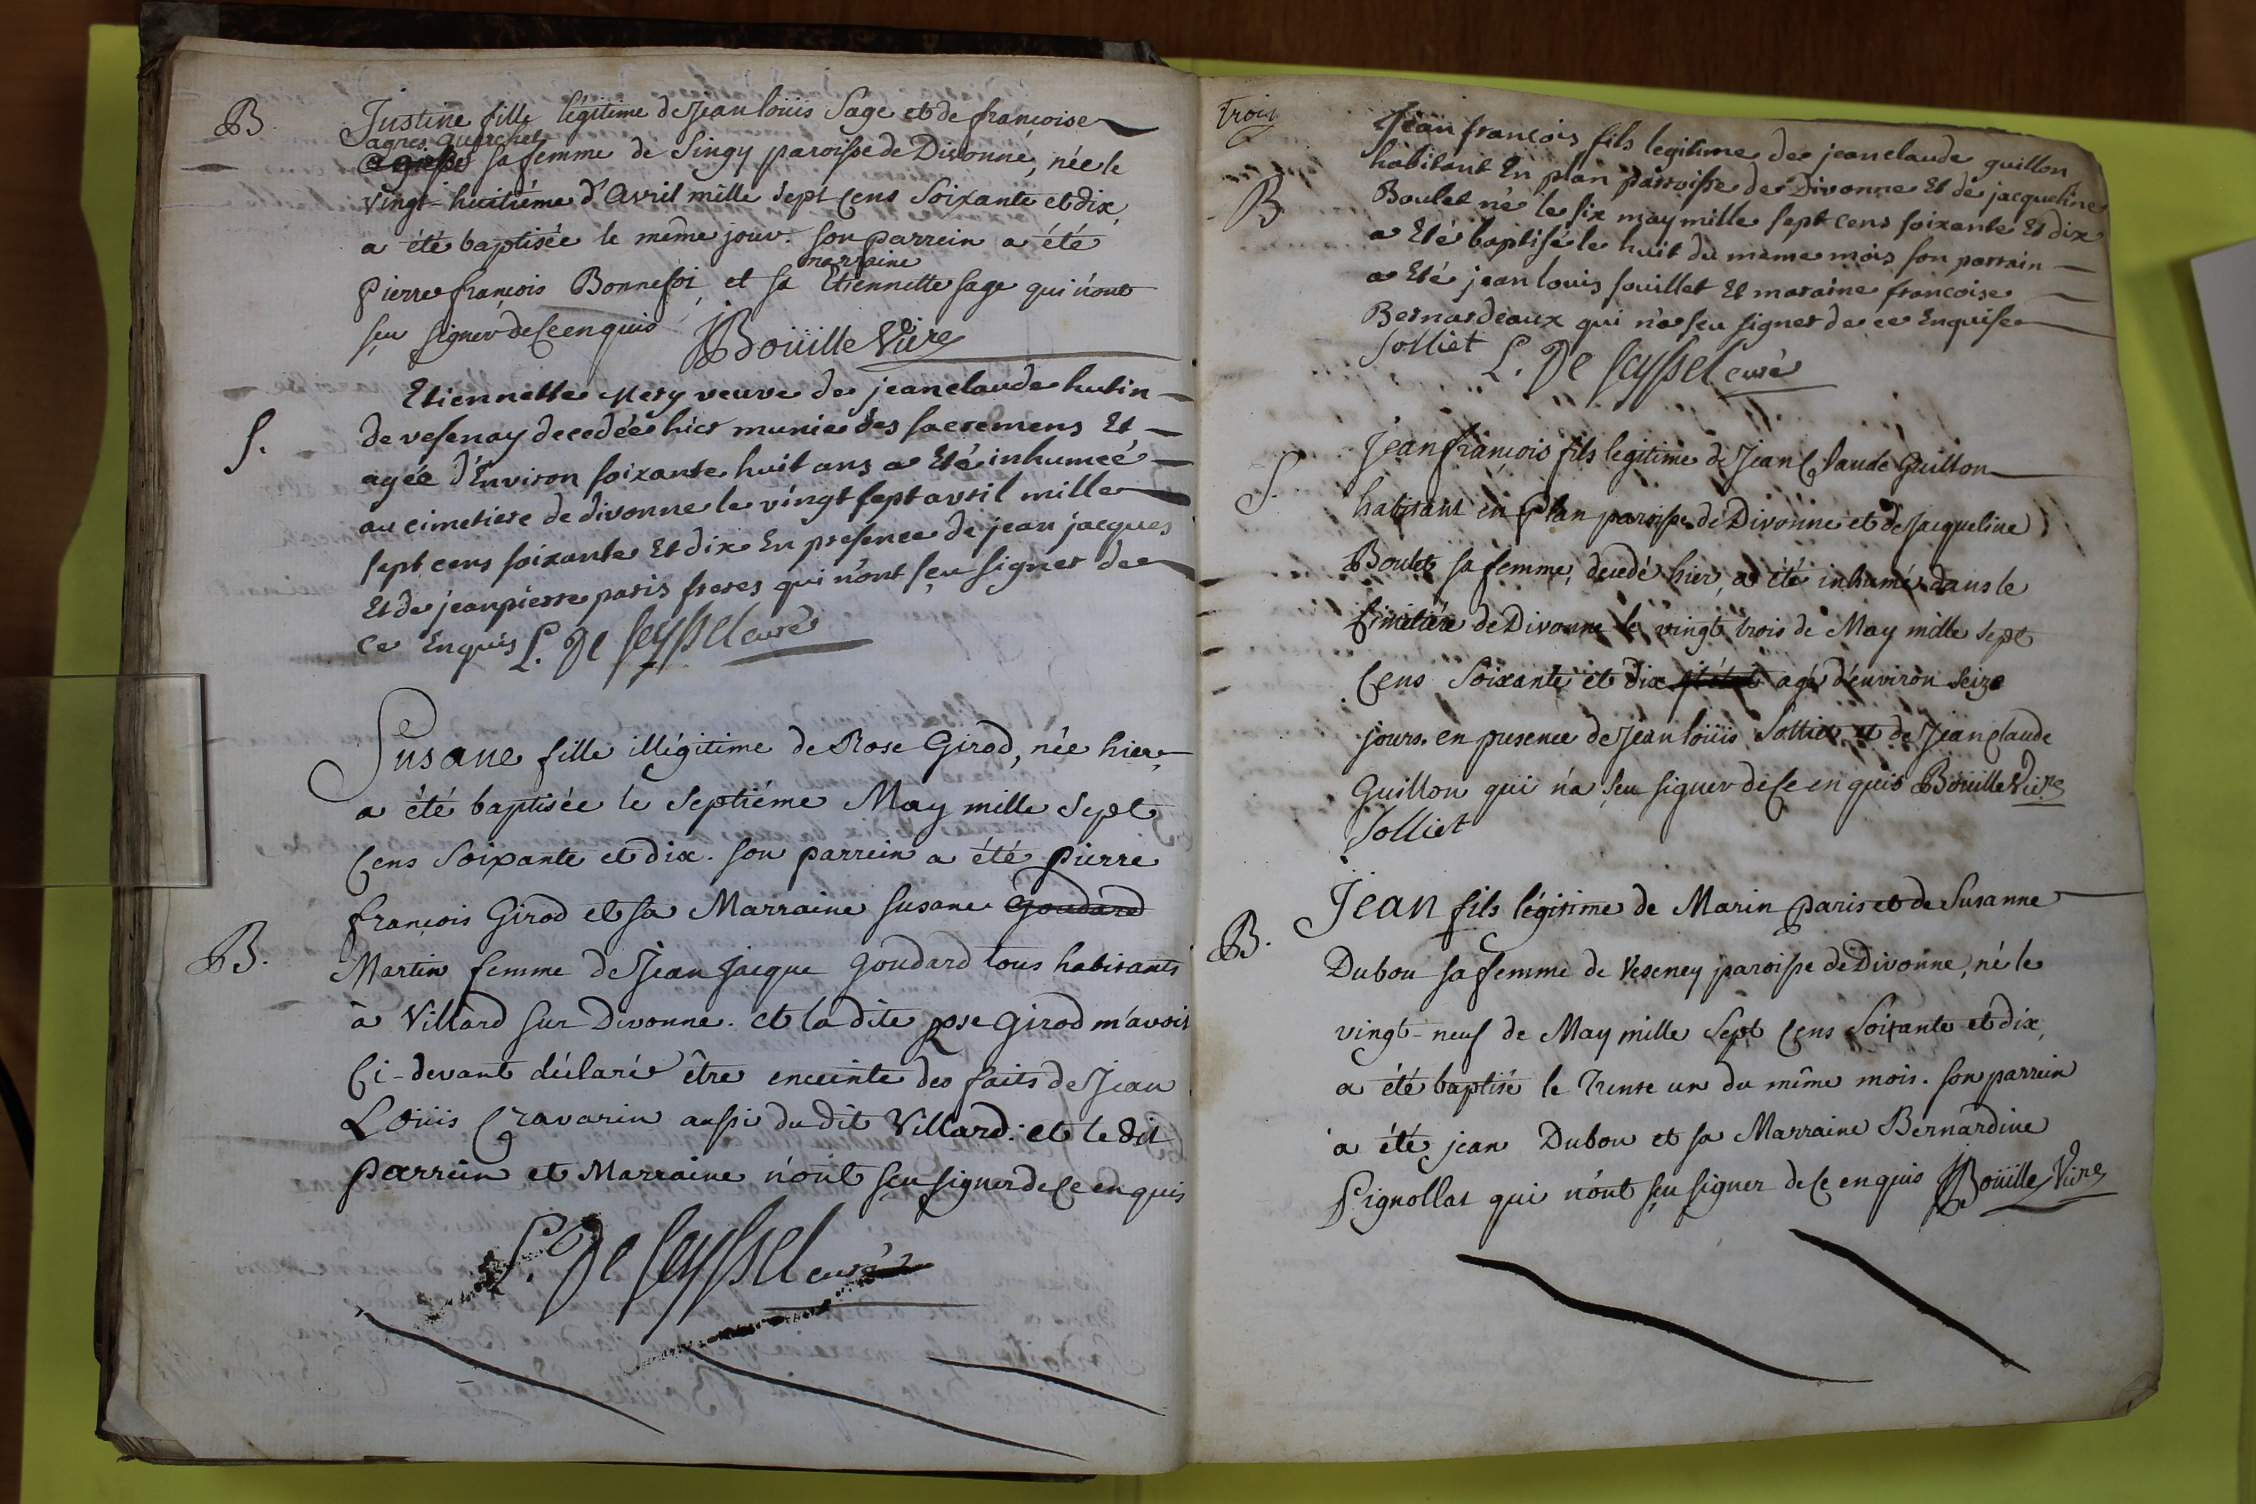 B.
Justine fille légitime de Jean loüis Sage et de francoise
agnes
sa femme de Singy paroisse de Divonne, née le
vingt-huitiéme d'Avril mille sept cens Soixante et dix,
a été baptisée le meme jour. son parrein a été
marraine
pierre françois Bonnefoi, et sa Etiennette sage qui n'ont
sçu signer de ce enquis JBoüille Vire
S.
Etiennette Mery veuve de jean claude hutin
de vesenay decedée hier munie des sacremens Et
agée d'Environ soixante huit ans a Eté inhumeé
au cimetiere de divonne le vingt sept avril mille
sept cens soixante Et dix En presence de jean jacques
Et de jean pierre paris freres qui n'ont sçu signer de
ce Enquis L. De Seyssel curé
Susane fille illégitime de Rose Girod, née hier,
a été baptisée le septiéme May mille sept
cens soixante et dix. son parrein a été pierre
françois Girod et sa Marraine susane Goudard
B.
Martin femme de Jean Jacque Goudard tous habitants
à Villard sur Divonne. et la dite Rose Girod m'avoit
Ci-devant déclaré être enceinte des faits de Jean
Loüis Gravarin aussi du dit Villard. et le dit
parrein et Marraine n'ont sçu signer de ce enquis
L. De Seyssel curé
trois
B
Jean francois fils legitime de jean claude guillon
habitant En plan parroisse de Divonne Et de jacqueline
Boulet né le six may mille sept cens soixante Et dix
a Eté baptisé le huit du meme mois son parrain
a Eté jean louis souillet Et maraine francoise
Bernardeaux qui n'a seu signer de ce Enquise
Solliet L. De Seyssel curé
S.
Jean francois fils legitime de Jean Claude Guillon
habitant en Plan paroisse de Divonne et de Jacqueline
Boulet sa femme, decedé hier, a été inhumé dans le
Cimitiére de Divonne le vingt trois de May mille sept
cens Soixante et dix agé d'environ seize
jours. en presence de Jean loüis Solliet et de Jean Claude
Guillon qui n'a sçu signer de ce enquis Boüille Vire
Solliet
B.
Jean fils légitime de Marin Paris et de Susanne
Dubou sa femme de Veseney paroisse de Divonne, né le
vingt-neuf de May mille Sept cens Soixante et dix,
a été baptisé le Trente un du même mois. son parrein
a été jean Dubou et sa Marraine Bernardine
Pignollat qui n'ont sçu signer de ce enquis JBoüille Vire